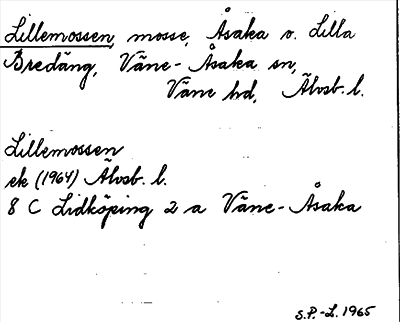 Lillemossen, mosse, Åsaka o. Lilla
Bredäng, Väne-Åsaka sn,
Väne hd, Älvsb. l.
Lillemossen
ek (1964) Älvsb. l.
8 C Lidköping 2 a Väne-Åsaka
S.P.-L. 1965